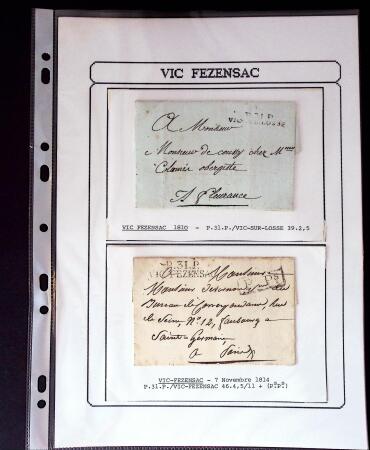 VIC FEZENSAC
P.31.P.
VIC-SUR-LOSSE
A Monsieur
Monsieur de coussy chez Mme
Colomés obergiste
A fleurance
VIC FEZENSAC 1810 - P.31.P./VIC-SUR-LOSSE 39.2,5
P.31.P.
VIC-FEZENSAC
A Monsieur
Monsieur
Bureau de Correspondance, Rue
de Seine, N° 12, faubourg
Saint Germain
A Paris
VIC-FEZENSAC - 7 Novembre 1814
P.31.P./VIC-FEZENSAC 46.4,5/11 + (P.P.)